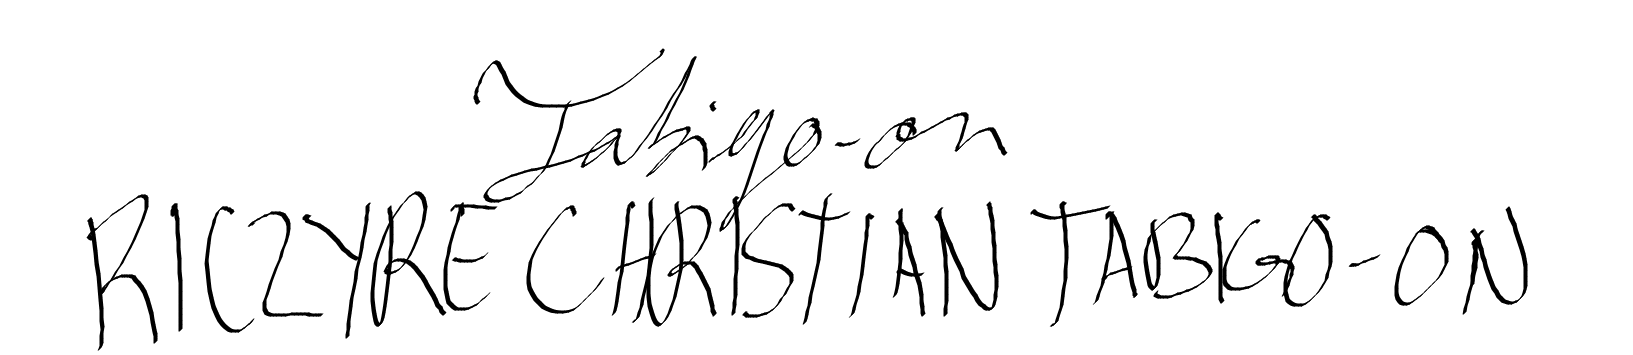 Tabigo-on
RICZYRE CHRISTIAN TABIGO-ON